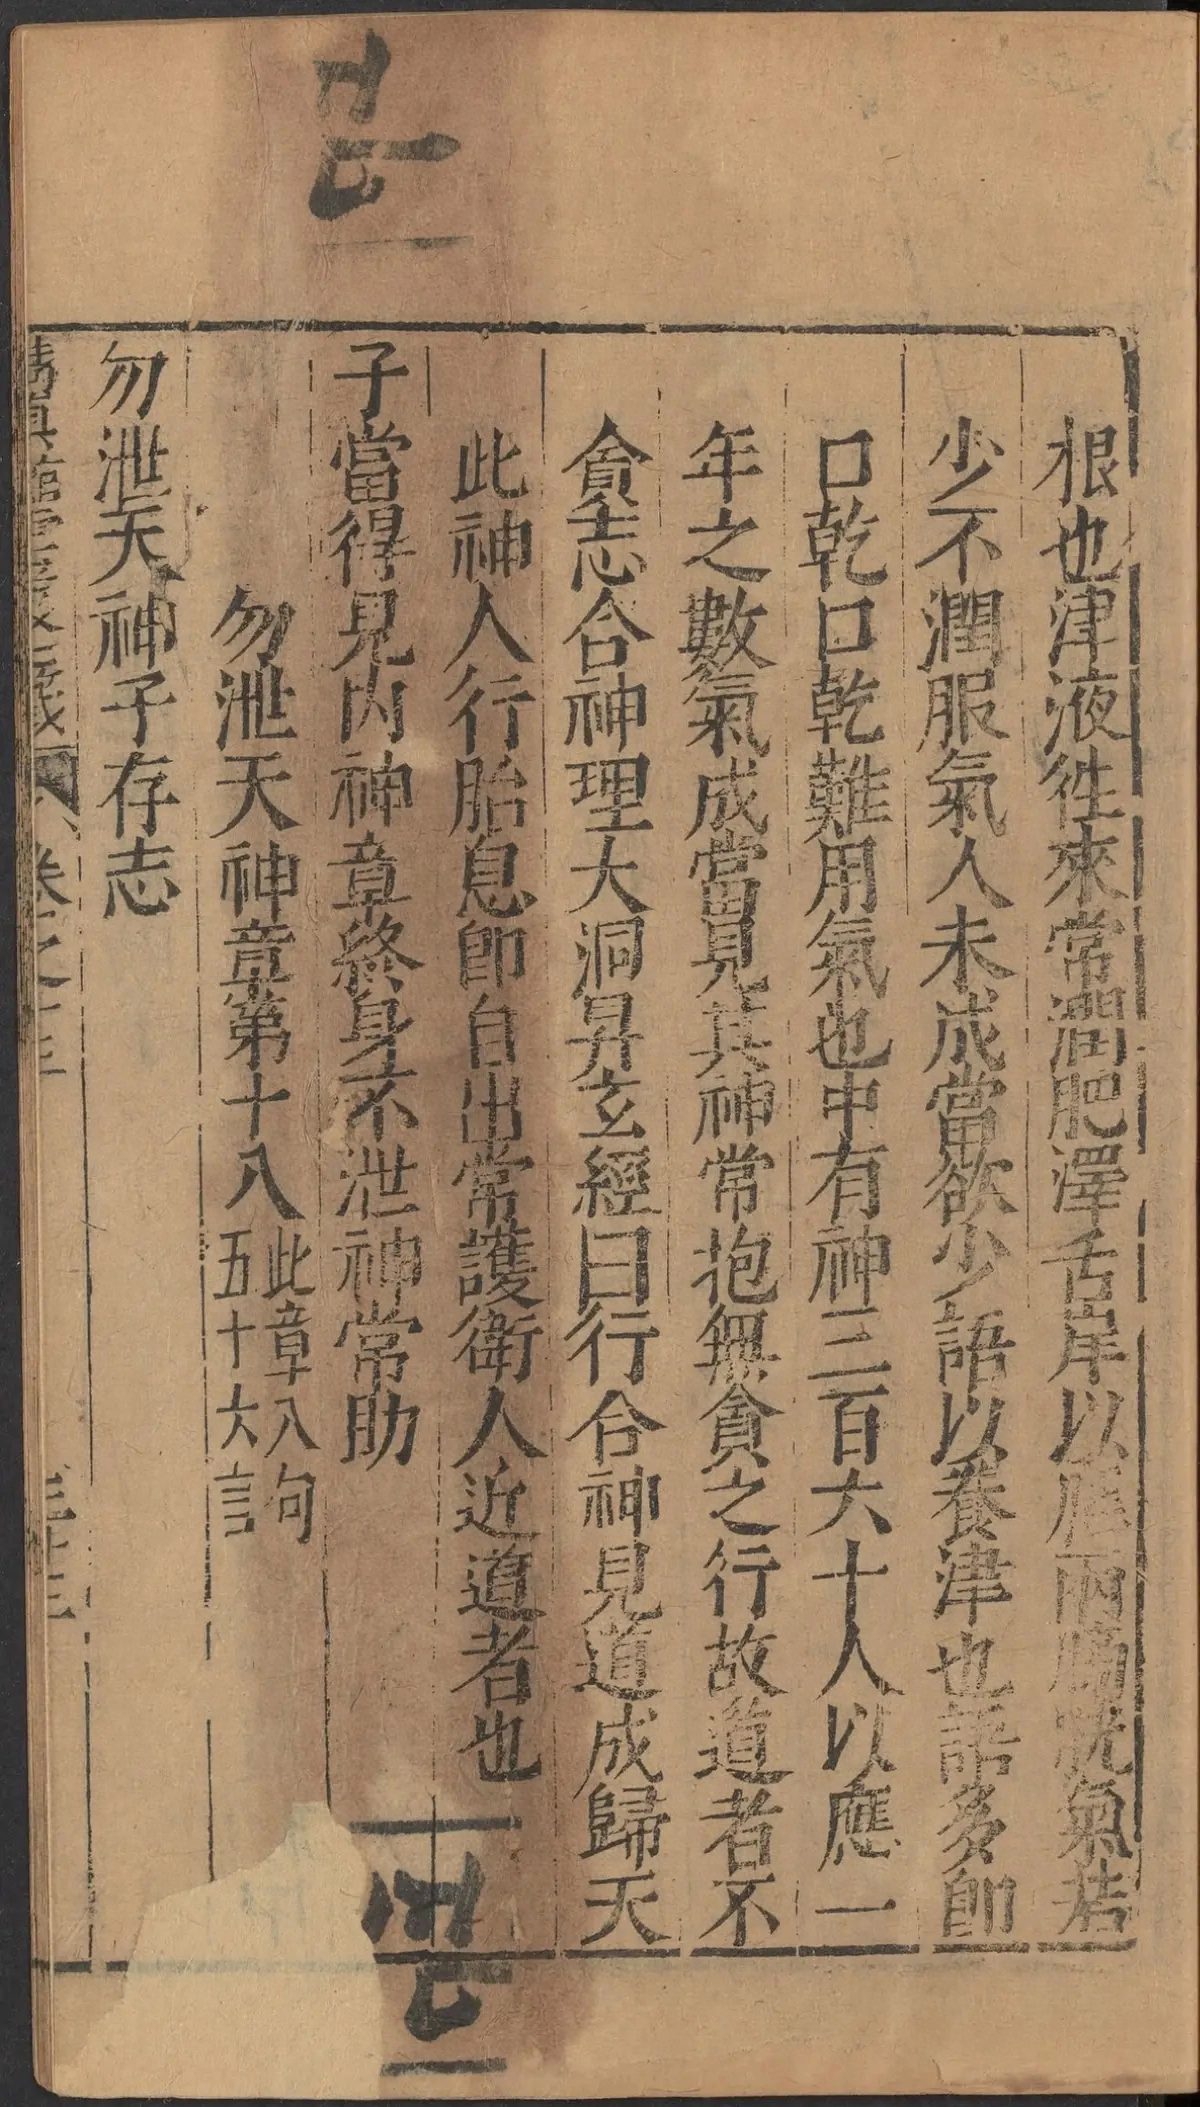 根也津液徃來常潤肥澤舌岸以应兩腸胱氣若
少不潤服氣人未成當欲少語以養津也語多卽
口乾口乾難用氣也中有神三百六十人以應一
年之數氣成當見其神常抱無貪之行故道者不
貪志合神理大洞昇玄經曰行合神見道成歸天
此神人行胎息卽自出常護衛人近道者也
子當得見內神章終身不泄神常助
勿泄天神章第十八
此章八句
五十六言
勿泄天神子存志
卷之十三